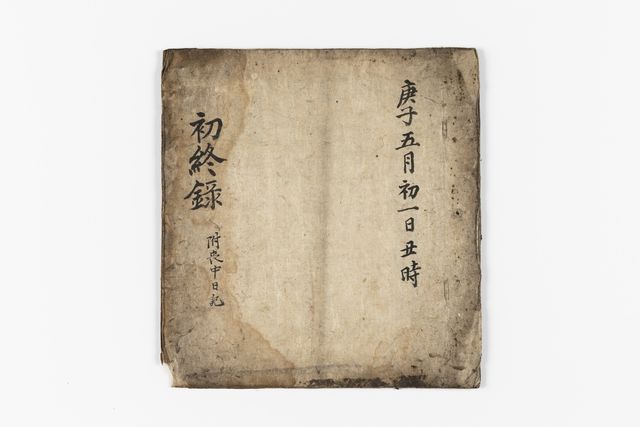 庚子五月初一日丑時
初終錄
附喪中日記